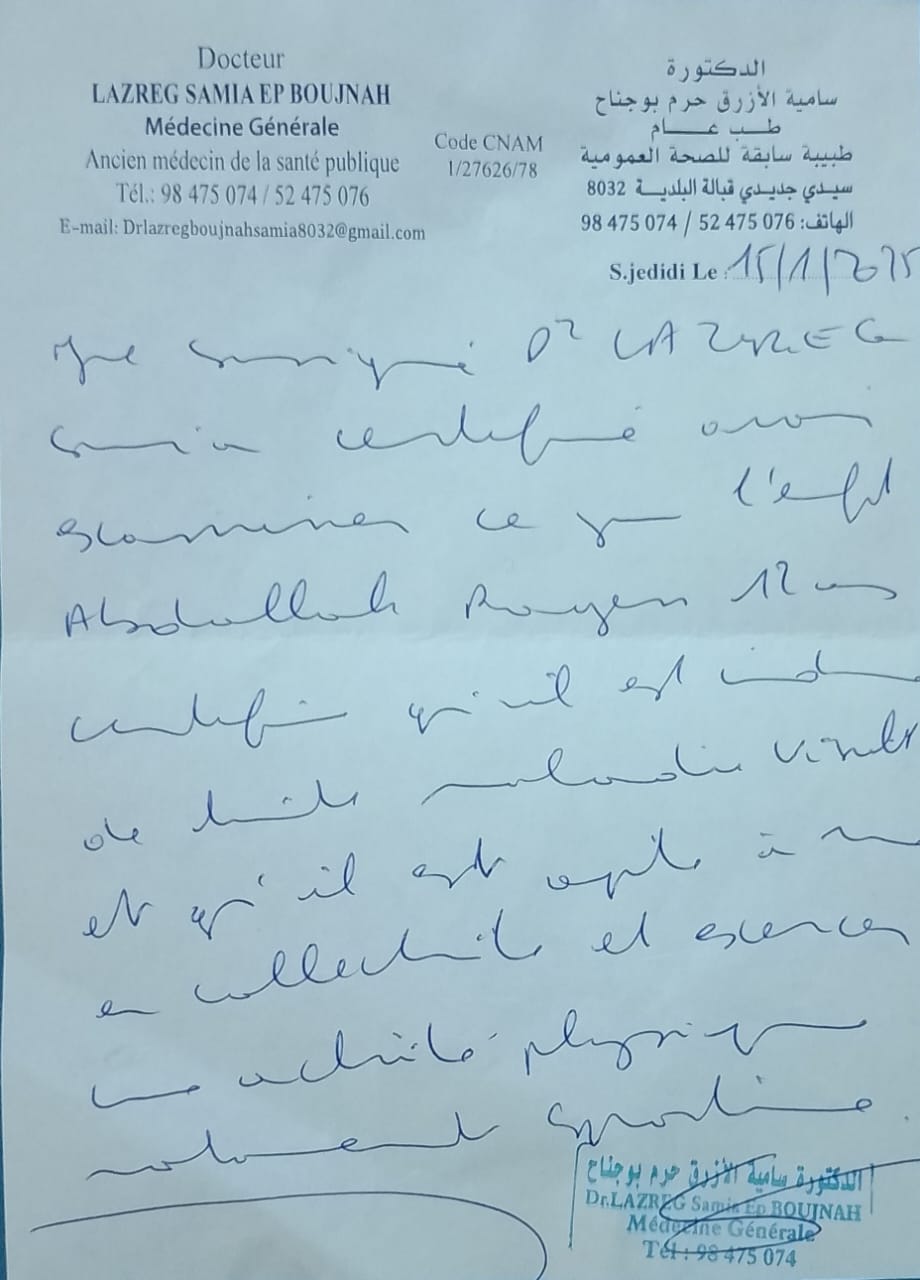 Docteur
LAZREG SAMIA EP BOUJNAH
Médecine Générale
Ancien médecin de la santé publique
Tél.: 98 475 074 / 52 475 076
E-mail: Drlazregboujnahsamia8032@gmail.com
Code CNAM
1/27626/78
الدكتورة
سامية الأزرق حرم بوجناح
طب عام
طبيبة سابقة للصحة العمومية
سيدي جديدي قبالة البلدية 8032
الهاتف: 98 475 074 / 52 475 076
S.jedidi Le : 15/1/2025
Je soussigné Dr LAZREG
Samia certifié avoir
examiner ce jour l'enfant
Abdallah Rayen 12 ans
certifie qu'il est indemne
de toute maladie
et qu'il est apte à
en collectivité et exercer
une activité physique
notamment sportive
الدكتورة سامية الأزرق حرم بوجناح
Dr.LAZREG Samia Ep BOUJNAH
Médecine Générale
Tél : 98 475 074